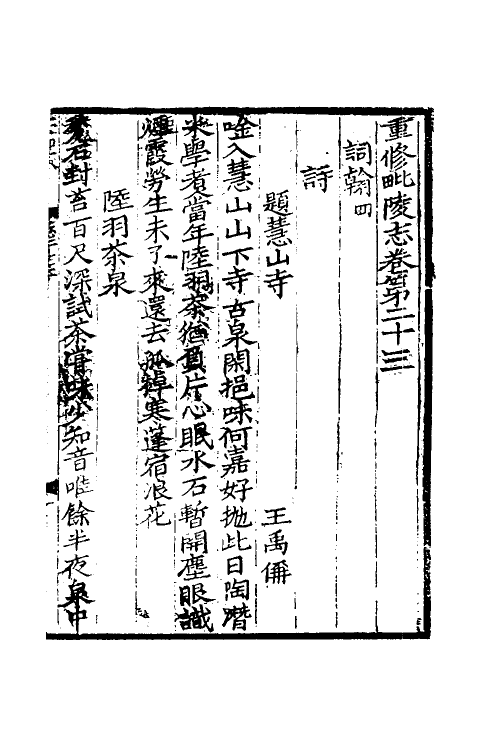 重修毗陵志卷第二十三
詞翰四
詩
題慧山寺 王禹偁
唫入慧山山下寺古泉閑挹味何嘉好抛此日陶潛
米學煮當年陸羽茶猶負片心眠水石暫開塵眼識
煙霞勞生未了來還去孤棹寒蓬宿浪花
陸羽茶泉
甃石封苔百尺深試茶嘗味少知音唯餘半夜泉中